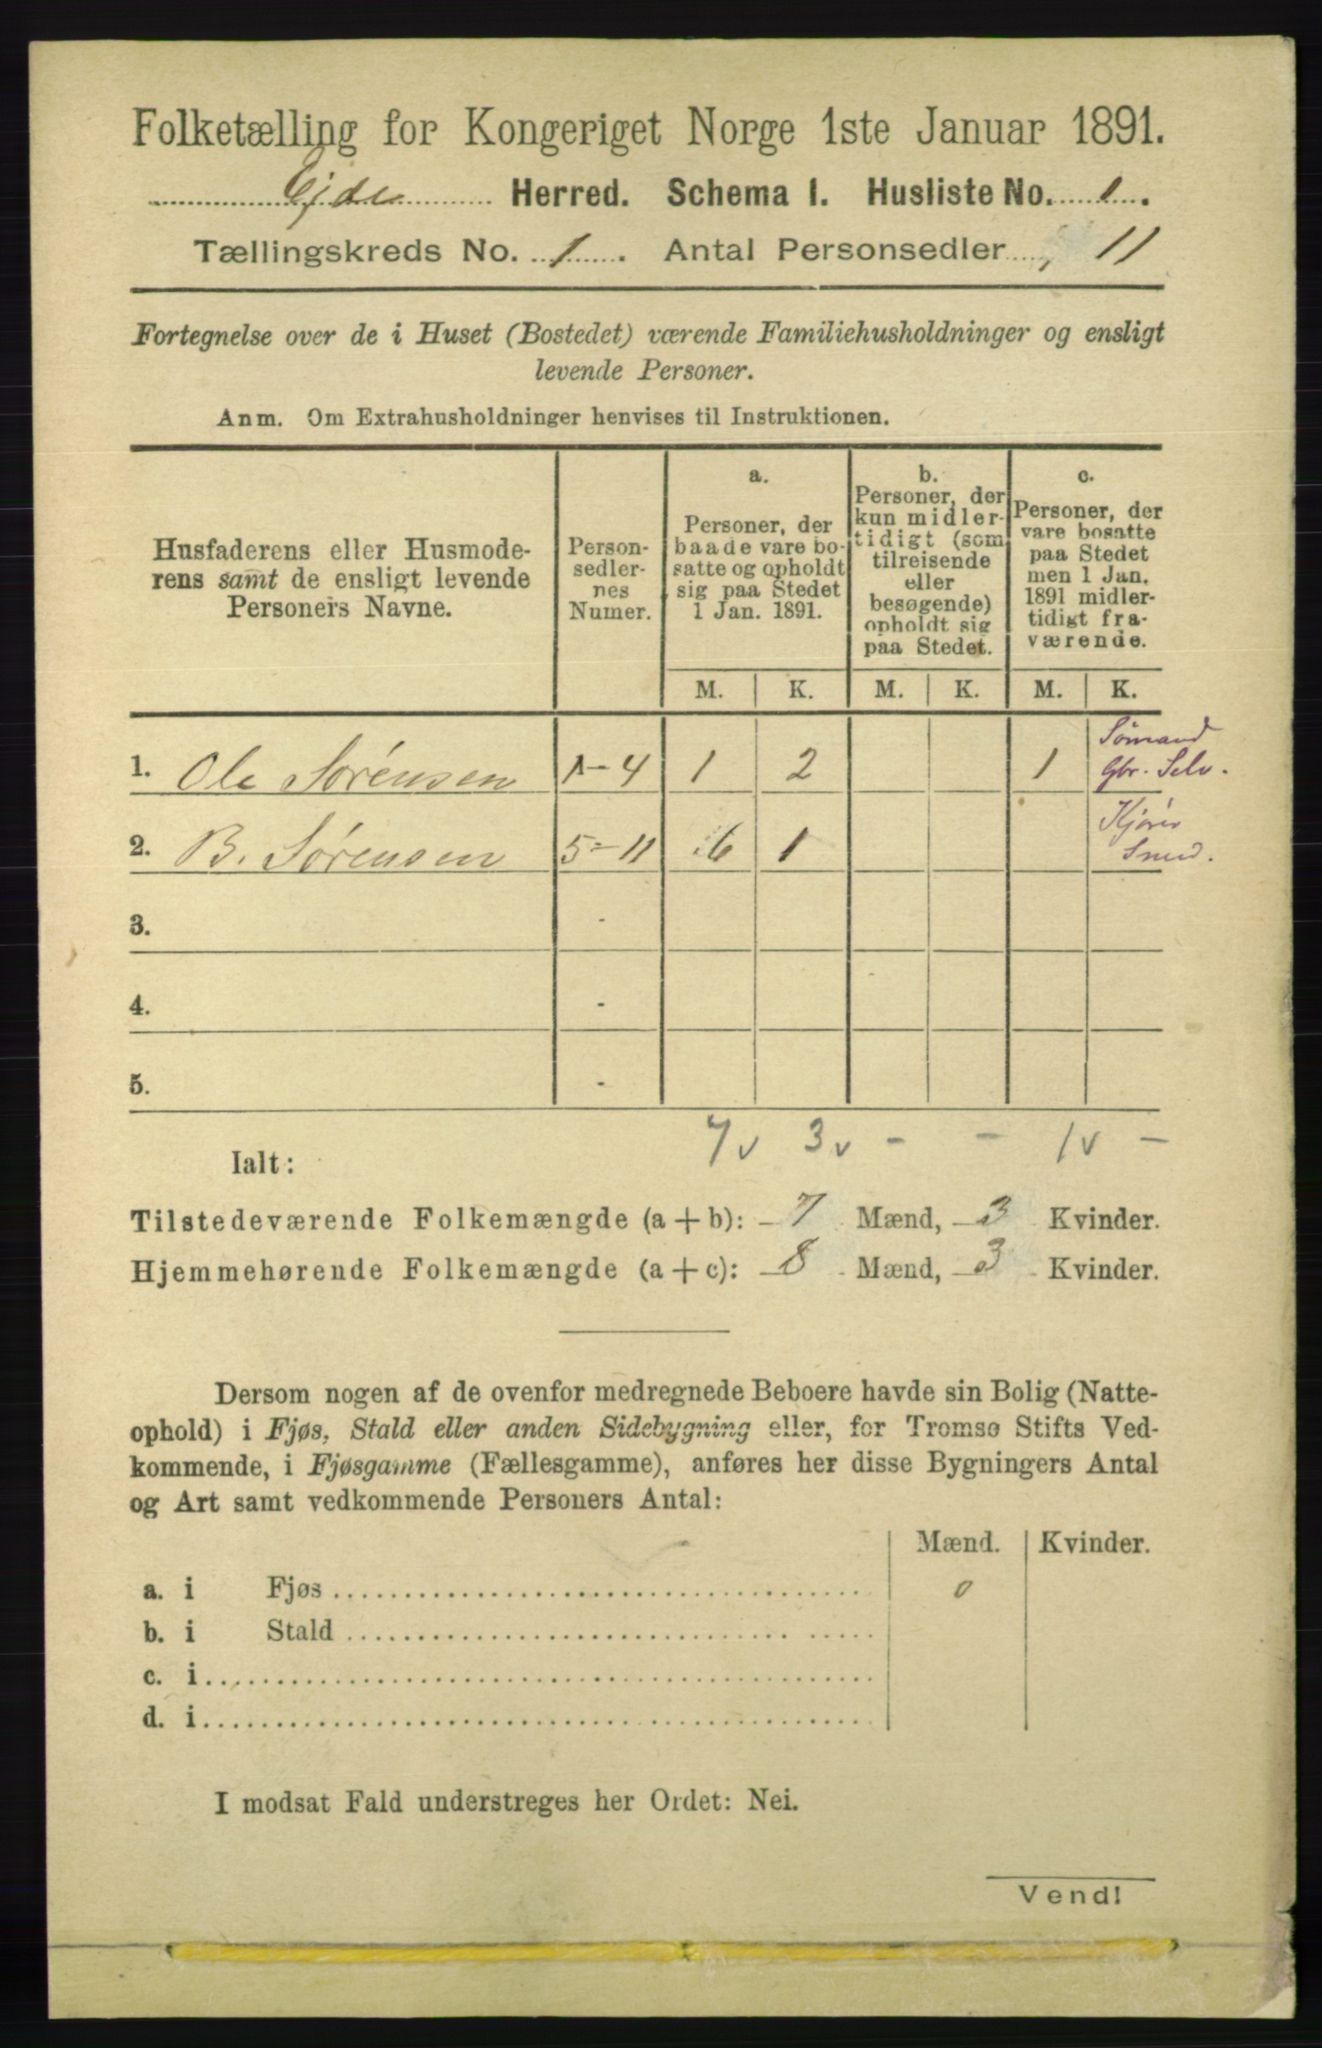 Folketælling for Kongeriget Norge 1ste Januar 1891.
Ejde Herred. Schema I. Husliste No. 1.
Tællingskreds No. 1. Antal Personsedler 11
Fortegnelse over de i Huset (Bostedet) værende Familiehusholdninger og ensligt
levende Personer.
Anm. Om Extrahusholdninger henvises til Instruktionen.
Husfaderens eller Husmode-
rens samt de ensligt levende
Personers Navne.
Person-
sedler-
nes
Numer.
a.
Personer, der
baade vare bo-
satte og opholdt
sig paa Stedet
1 Jan. 1891.
b.
Personer, der
kun midler-
tidigt (som
tilreisende
eller
besøgende)
opholdt sig
paa Stedet.
c.
Personer, der
vare bosatte
paa Stedet
men 1 Jan.
1891 midler-
tidigt fra-
værende.
M. K. M. K. M. K.
1. Ole Sørensen 1-4 1 2 1 Sømand
Gbr. Selv.
2. B. Sørensen 5-11 6 1
Smed.
3. -
4. -
5. -
Ialt: 7v 3v - - 1v -
Tilstedeværende Folkemængde (a + b): 7 Mænd, 3 Kvinder.
Hjemmehørende Folkemængde (a + c): 8 Mænd, 3 Kvinder.
Dersom nogen af de ovenfor medregnede Beboere havde sin Bolig (Natte-
ophold) i Fjøs, Stald eller anden Sidebygning eller, for Tromsø Stifts Ved-
kommende, i Fjøsgamme (Fællesgamme), anføres her disse Bygningers Antal
og Art samt vedkommende Personers Antal:
Mænd. Kvinder.
a. i Fjøs 0
b. i Stald
c. i
d. i
I modsat Fald understreges her Ordet: Nei.
Vend!